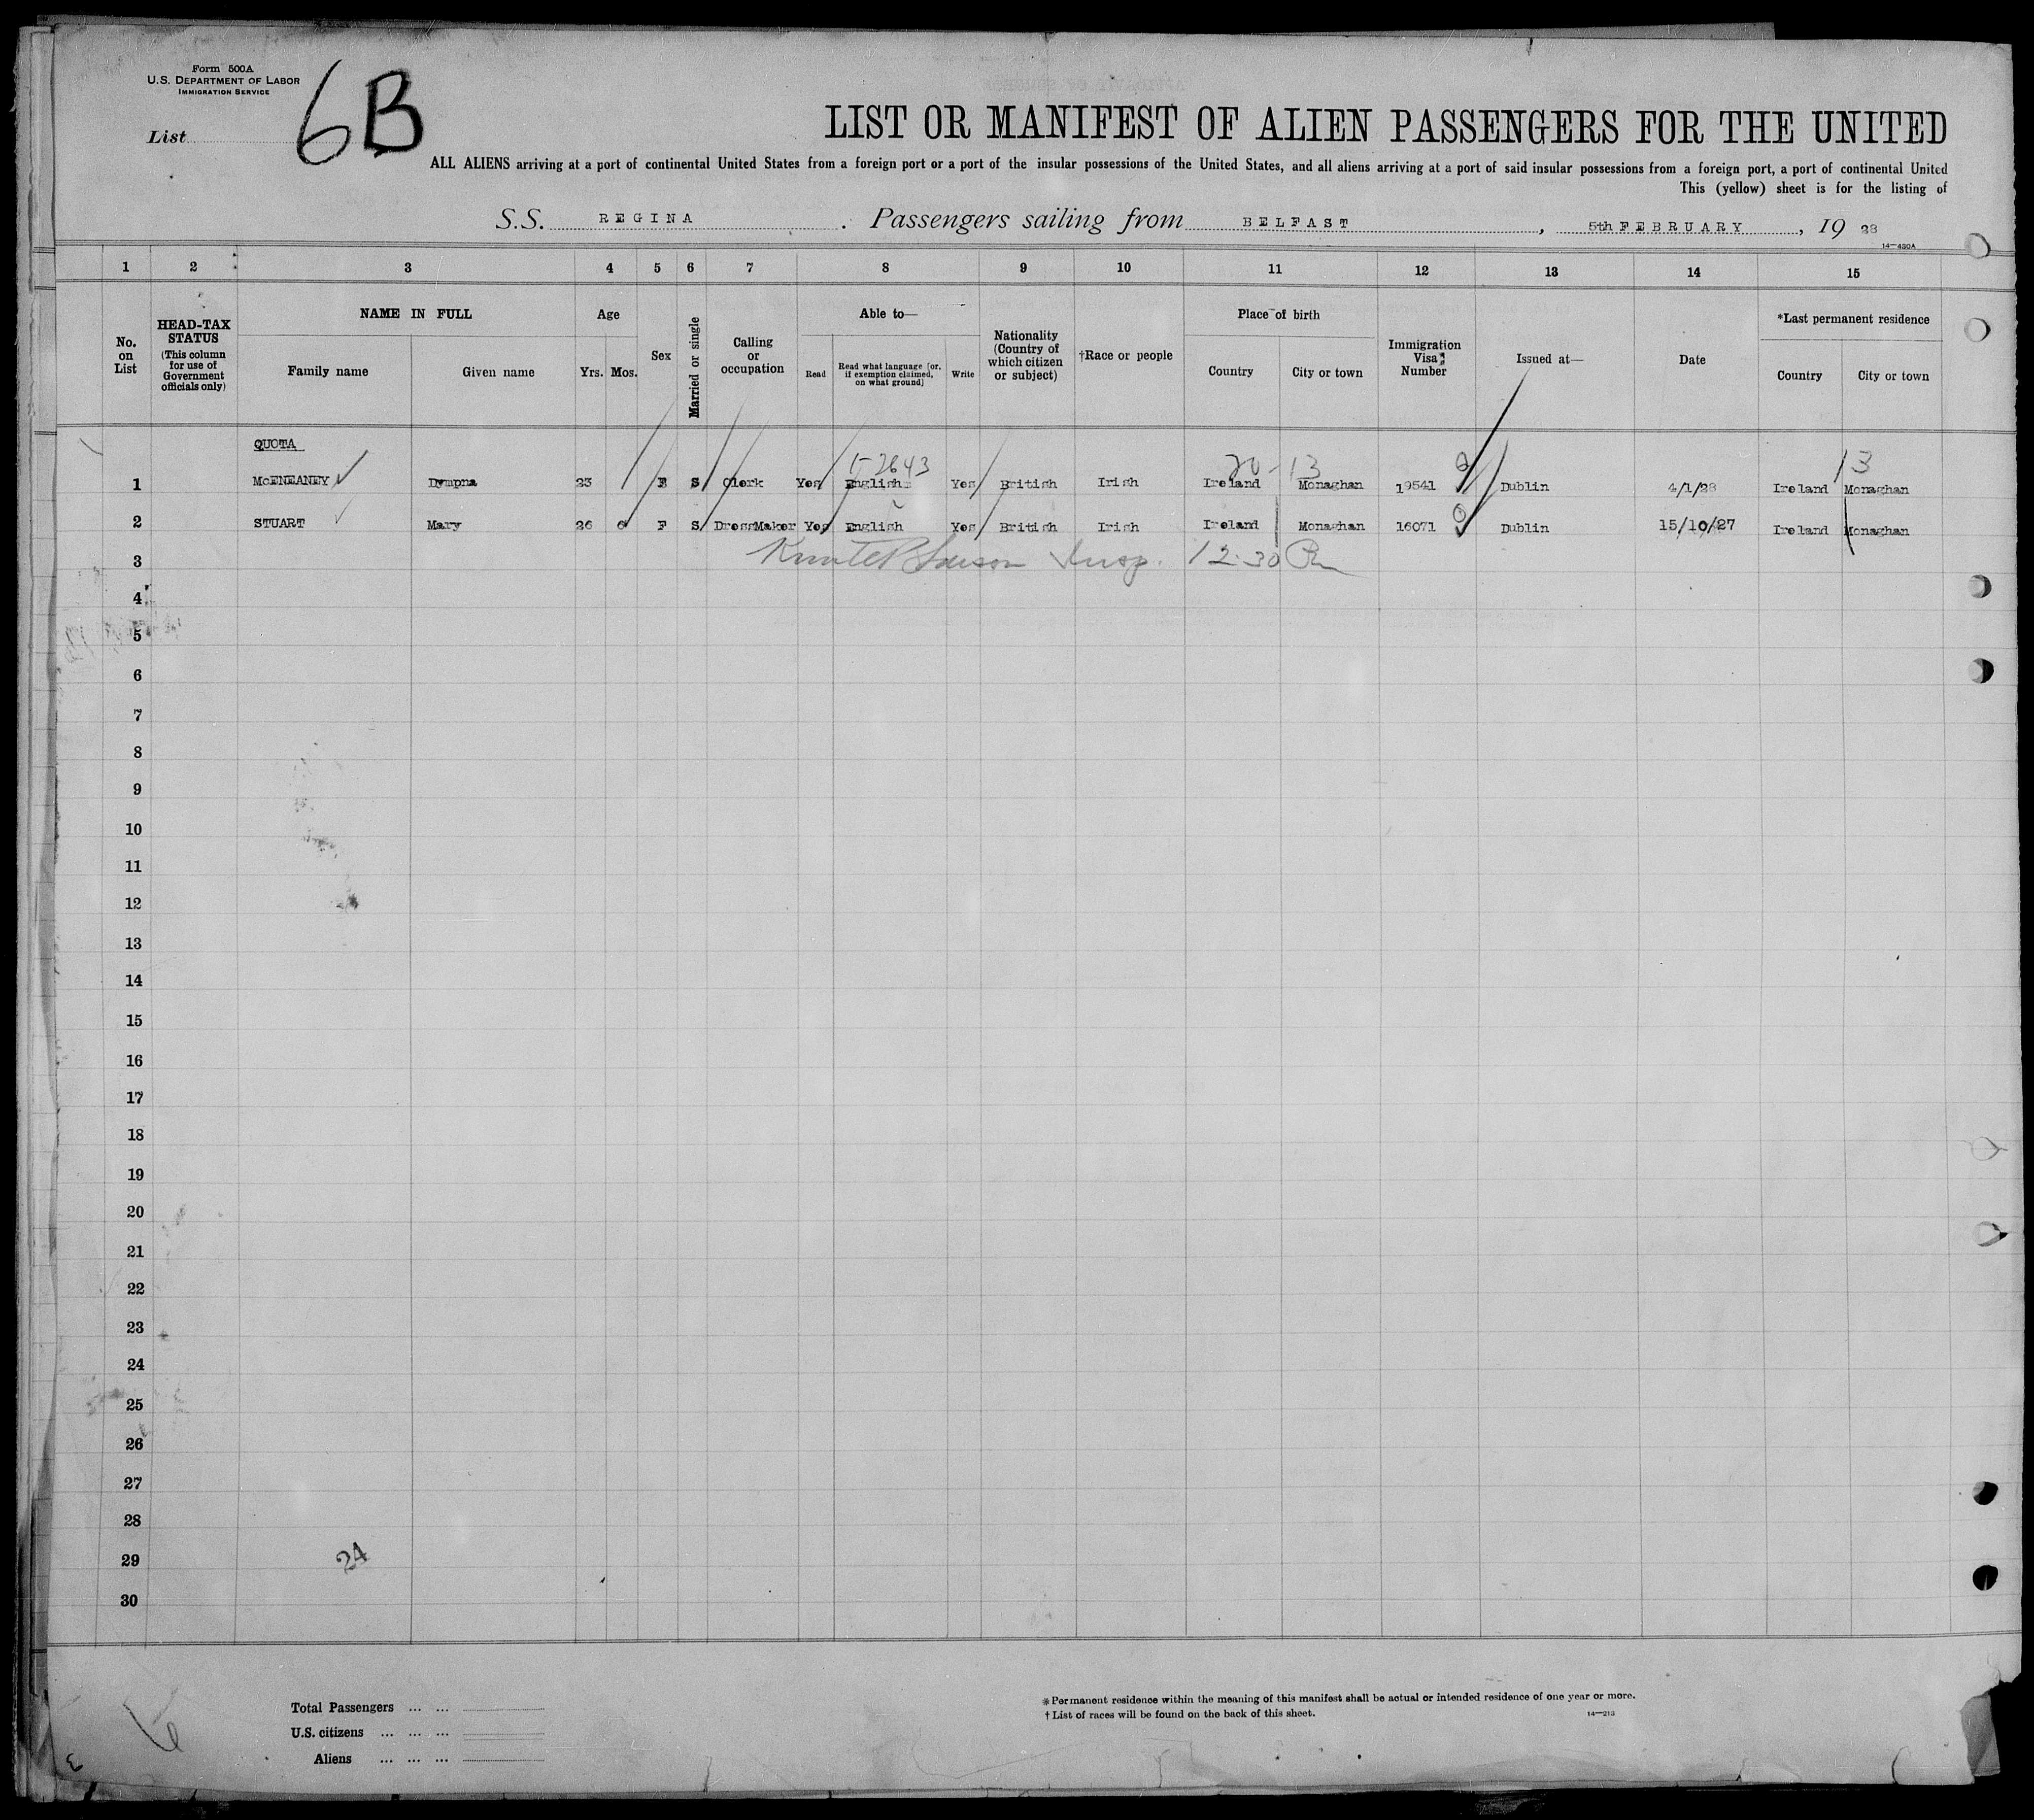 Form 500A
U.S. DEPARTMENT OF LABOR
IMMIGRATION SERVICE
List
6B
LIST OR MANIFEST OF ALIEN PASSENGERS FOR THE UNITED
ALL ALIENS arriving at a port of continental United States from a foreign port or a port of the insular possessions of the United States, and all aliens arriving at a port of said insular possessions from a foreign port, a port of continental United
This (yellow) sheet is for the listing of
S.S. REGINA . Passengers sailing from BELFAST , 5th FEBRUARY , 19 28
14—430A
1 2 3 4 5 6 7 8 9 10 11 12 13 14 15
No. on List
HEAD-TAX STATUS (This column for use of Government officials only)
NAME IN FULL
Family name Given name
Age
Yrs. Mos.
Sex
Married or single
Calling or occupation
Able to—
Read Read what language [or, if exemption claimed, on what ground] Write
Nationality (Country of which citizen or subject)
†Race or people
Place of birth
Country City or town
Immigration Visa Number
Issued at—
Date
*Last permanent residence
Country City or town
QUOTA
5-2643 20-13 13
1 McENEANEY Dympna 23 F S Clerk Yes English Yes British Irish Ireland Monaghan 19541 Dublin 4/1/28 Ireland Monaghan
2 STUART Mary 26 6 F S DressMaker Yes English Yes British Irish Ireland Monaghan 16071 Dublin 15/10/27 Ireland Monaghan
3 Insp. 12-30 Pm
4
5
6
7
8
9
10
11
12
13
14
15
16
17
18
19
20
21
22
23
24
25
26
27
28
29 24
30
Total Passengers ... ...
U.S. citizens ... ... ...
Aliens ... ... ...
*Permanent residence within the meaning of this manifest shall be actual or intended residence of one year or more.
†List of races will be found on the back of this sheet.
14—213